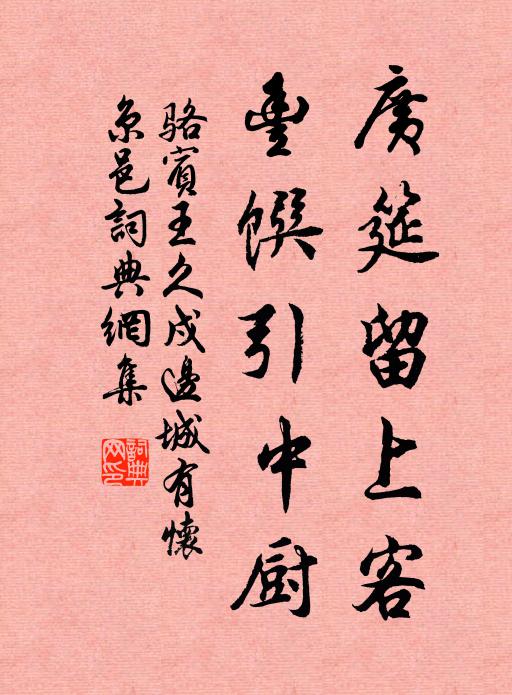 廣筵留上客
豐饌引中廚
駱賓王久戍邊城有懷
京邑詞典網集
詞典
网印